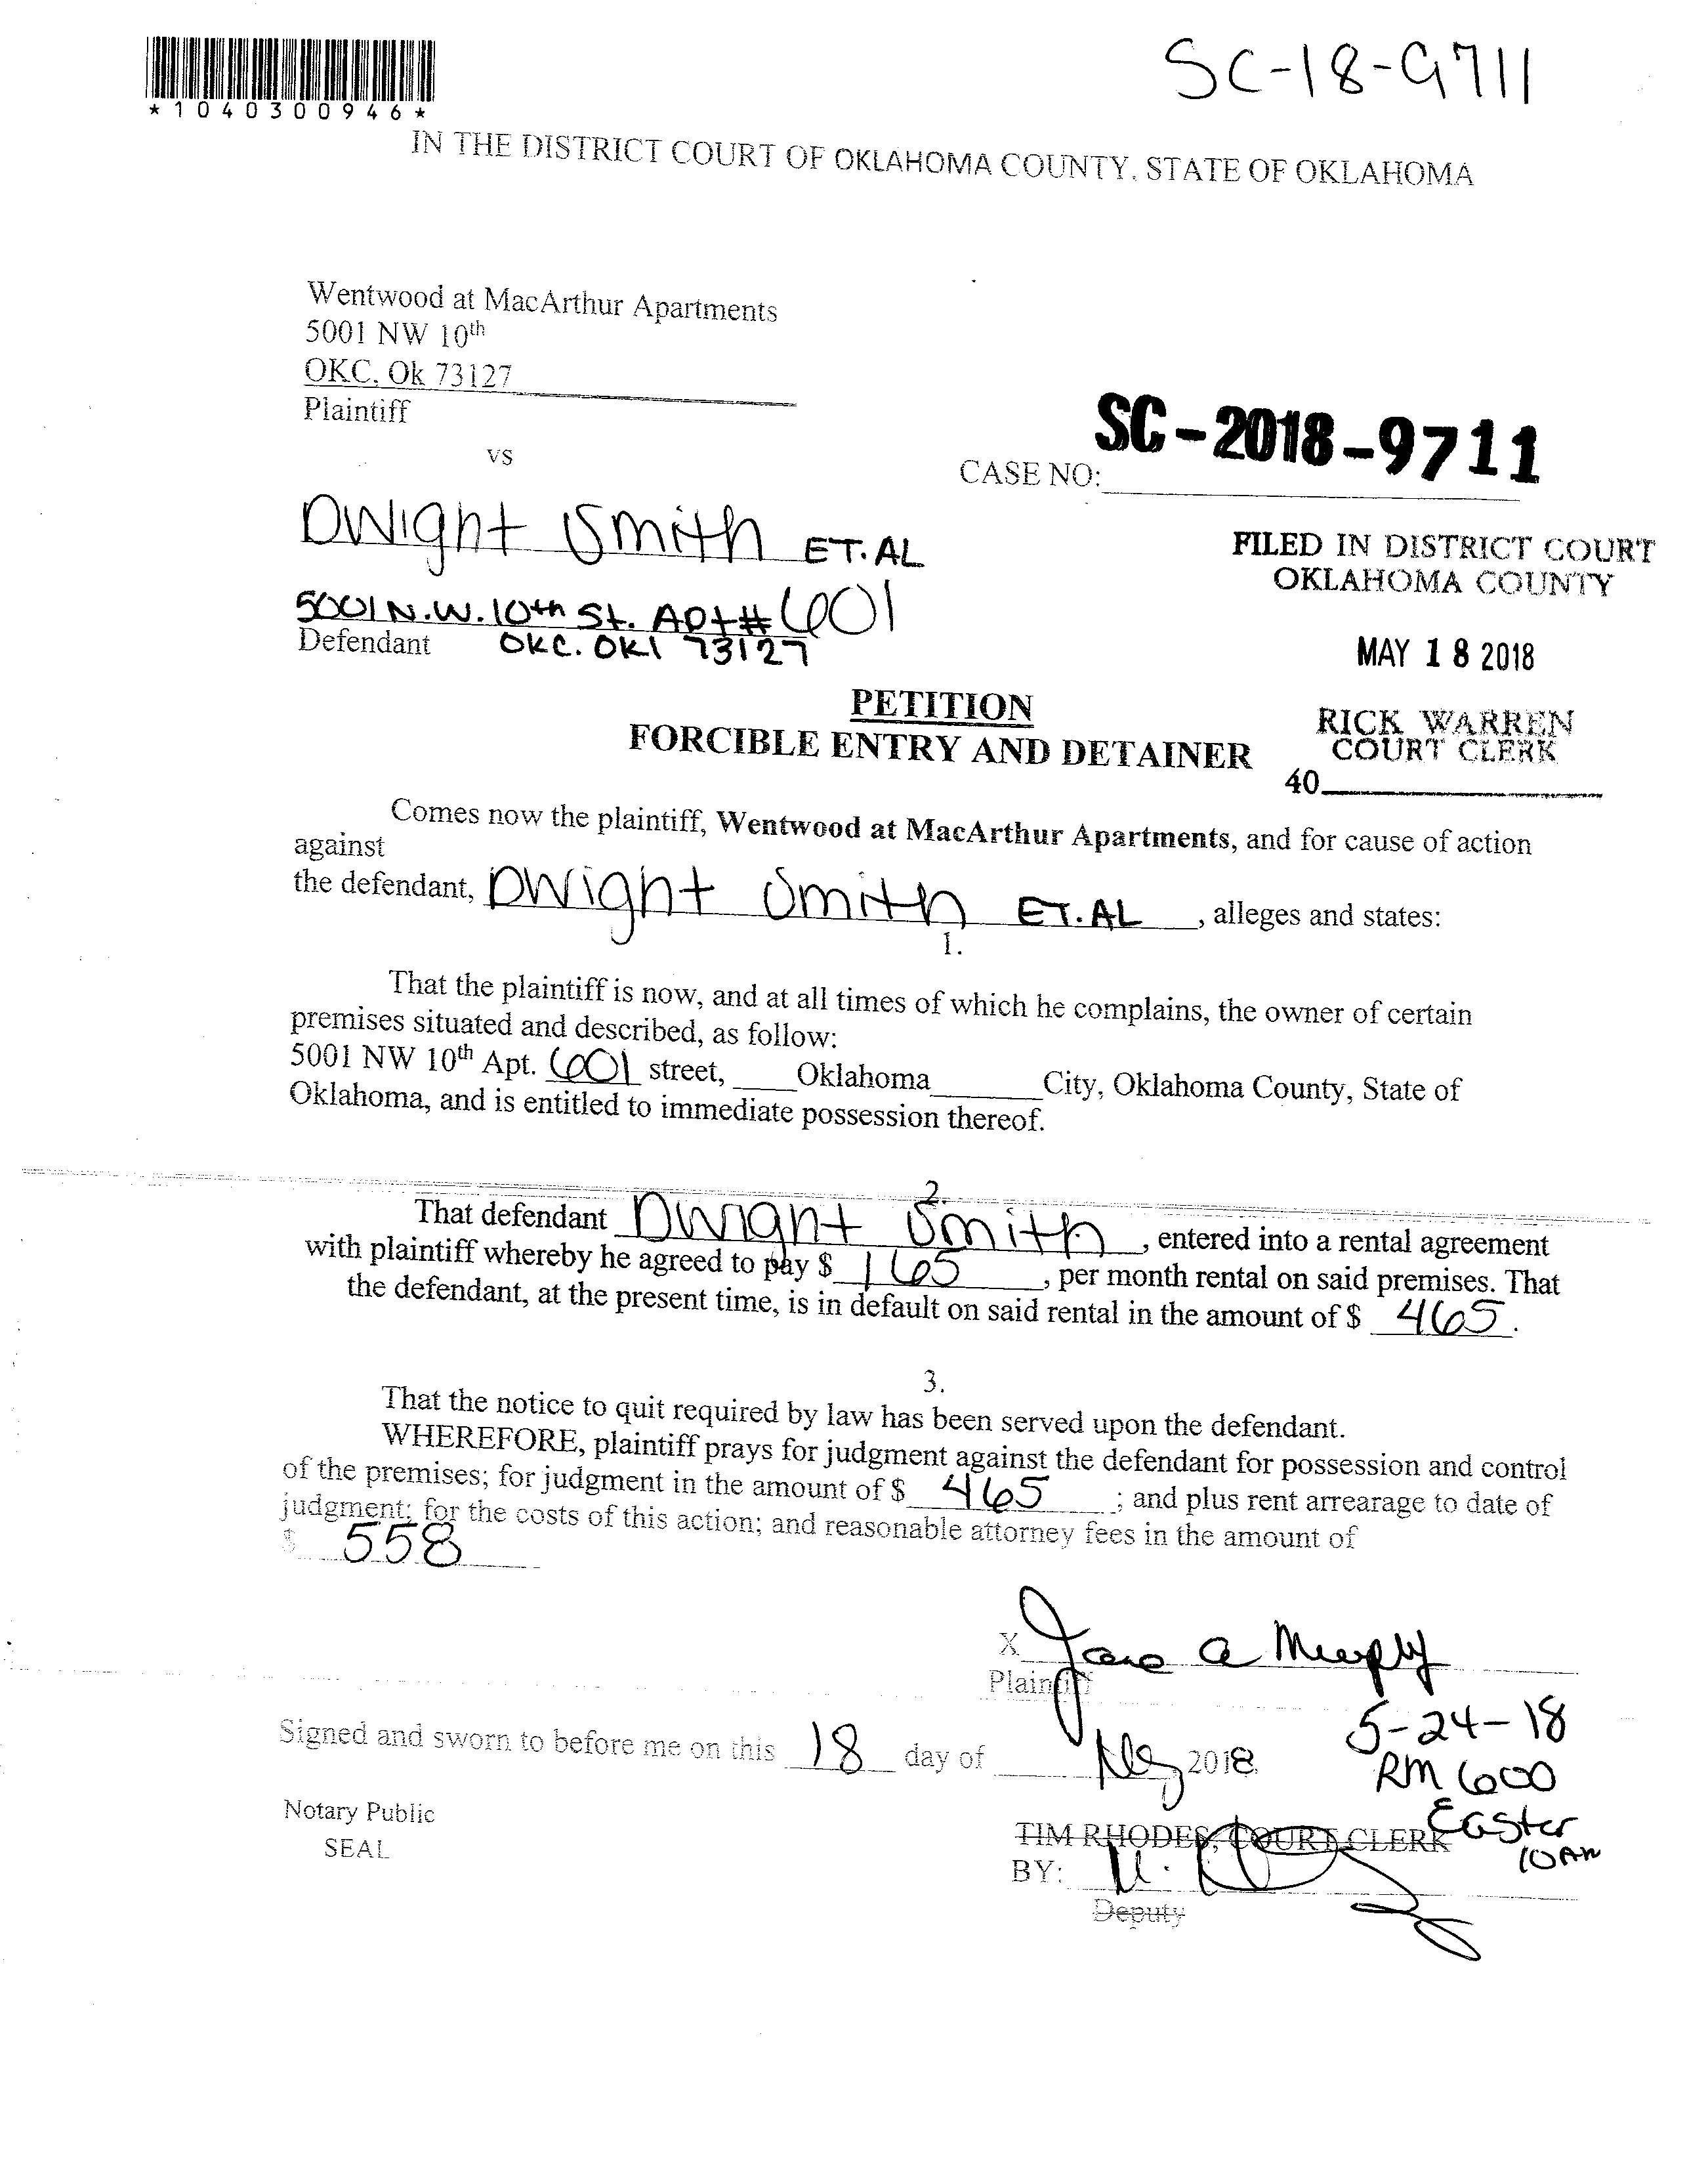 SC-18-9711
*1040300946*
IN THE DISTRICT COURT OF OKLAHOMA COUNTY, STATE OF OKLAHOMA
Wentwood at MacArthur Apartments
5001 NW 10th
OKC, Ok 73127
Plaintiff
vs
SC-2018-9711
CASE NO:
Dwight Smith ET.AL
5001 N.W. 10th St. Apt# 601
Defendant OKC. OKl 73127
FILED IN DISTRICT COURT
OKLAHOMA COUNTY
MAY 18 2018
RICK WARREN
COURT CLERK
40
PETITION
FORCIBLE ENTRY AND DETAINER
Comes now the plaintiff, Wentwood at MacArthur Apartments, and for cause of action
against
the defendant, Dwight Smith ET.AL , alleges and states:
1.
That the plaintiff is now, and at all times of which he complains, the owner of certain
premises situated and described, as follow:
5001 NW 10th Apt. 601 street, Oklahoma City, Oklahoma County, State of
Oklahoma, and is entitled to immediate possession thereof.
2.
That defendant Dwight Smith , entered into a rental agreement
with plaintiff whereby he agreed to pay $ 165 , per month rental on said premises. That
the defendant, at the present time, is in default on said rental in the amount of $ 465.
3.
That the notice to quit required by law has been served upon the defendant.
WHEREFORE, plaintiff prays for judgment against the defendant for possession and control
of the premises; for judgment in the amount of $ 465 ; and plus rent arrearage to date of
judgment; for the costs of this action; and reasonable attorney fees in the amount of
$ 558
X Jane a Murphy
Plaintiff
Signed and sworn to before me on this 18 day of May 2018.
5-24-18
RM 600
Easter
10 AM
Notary Public
SEAL
TIM RHODES, COURT CLERK
BY:
Deputy